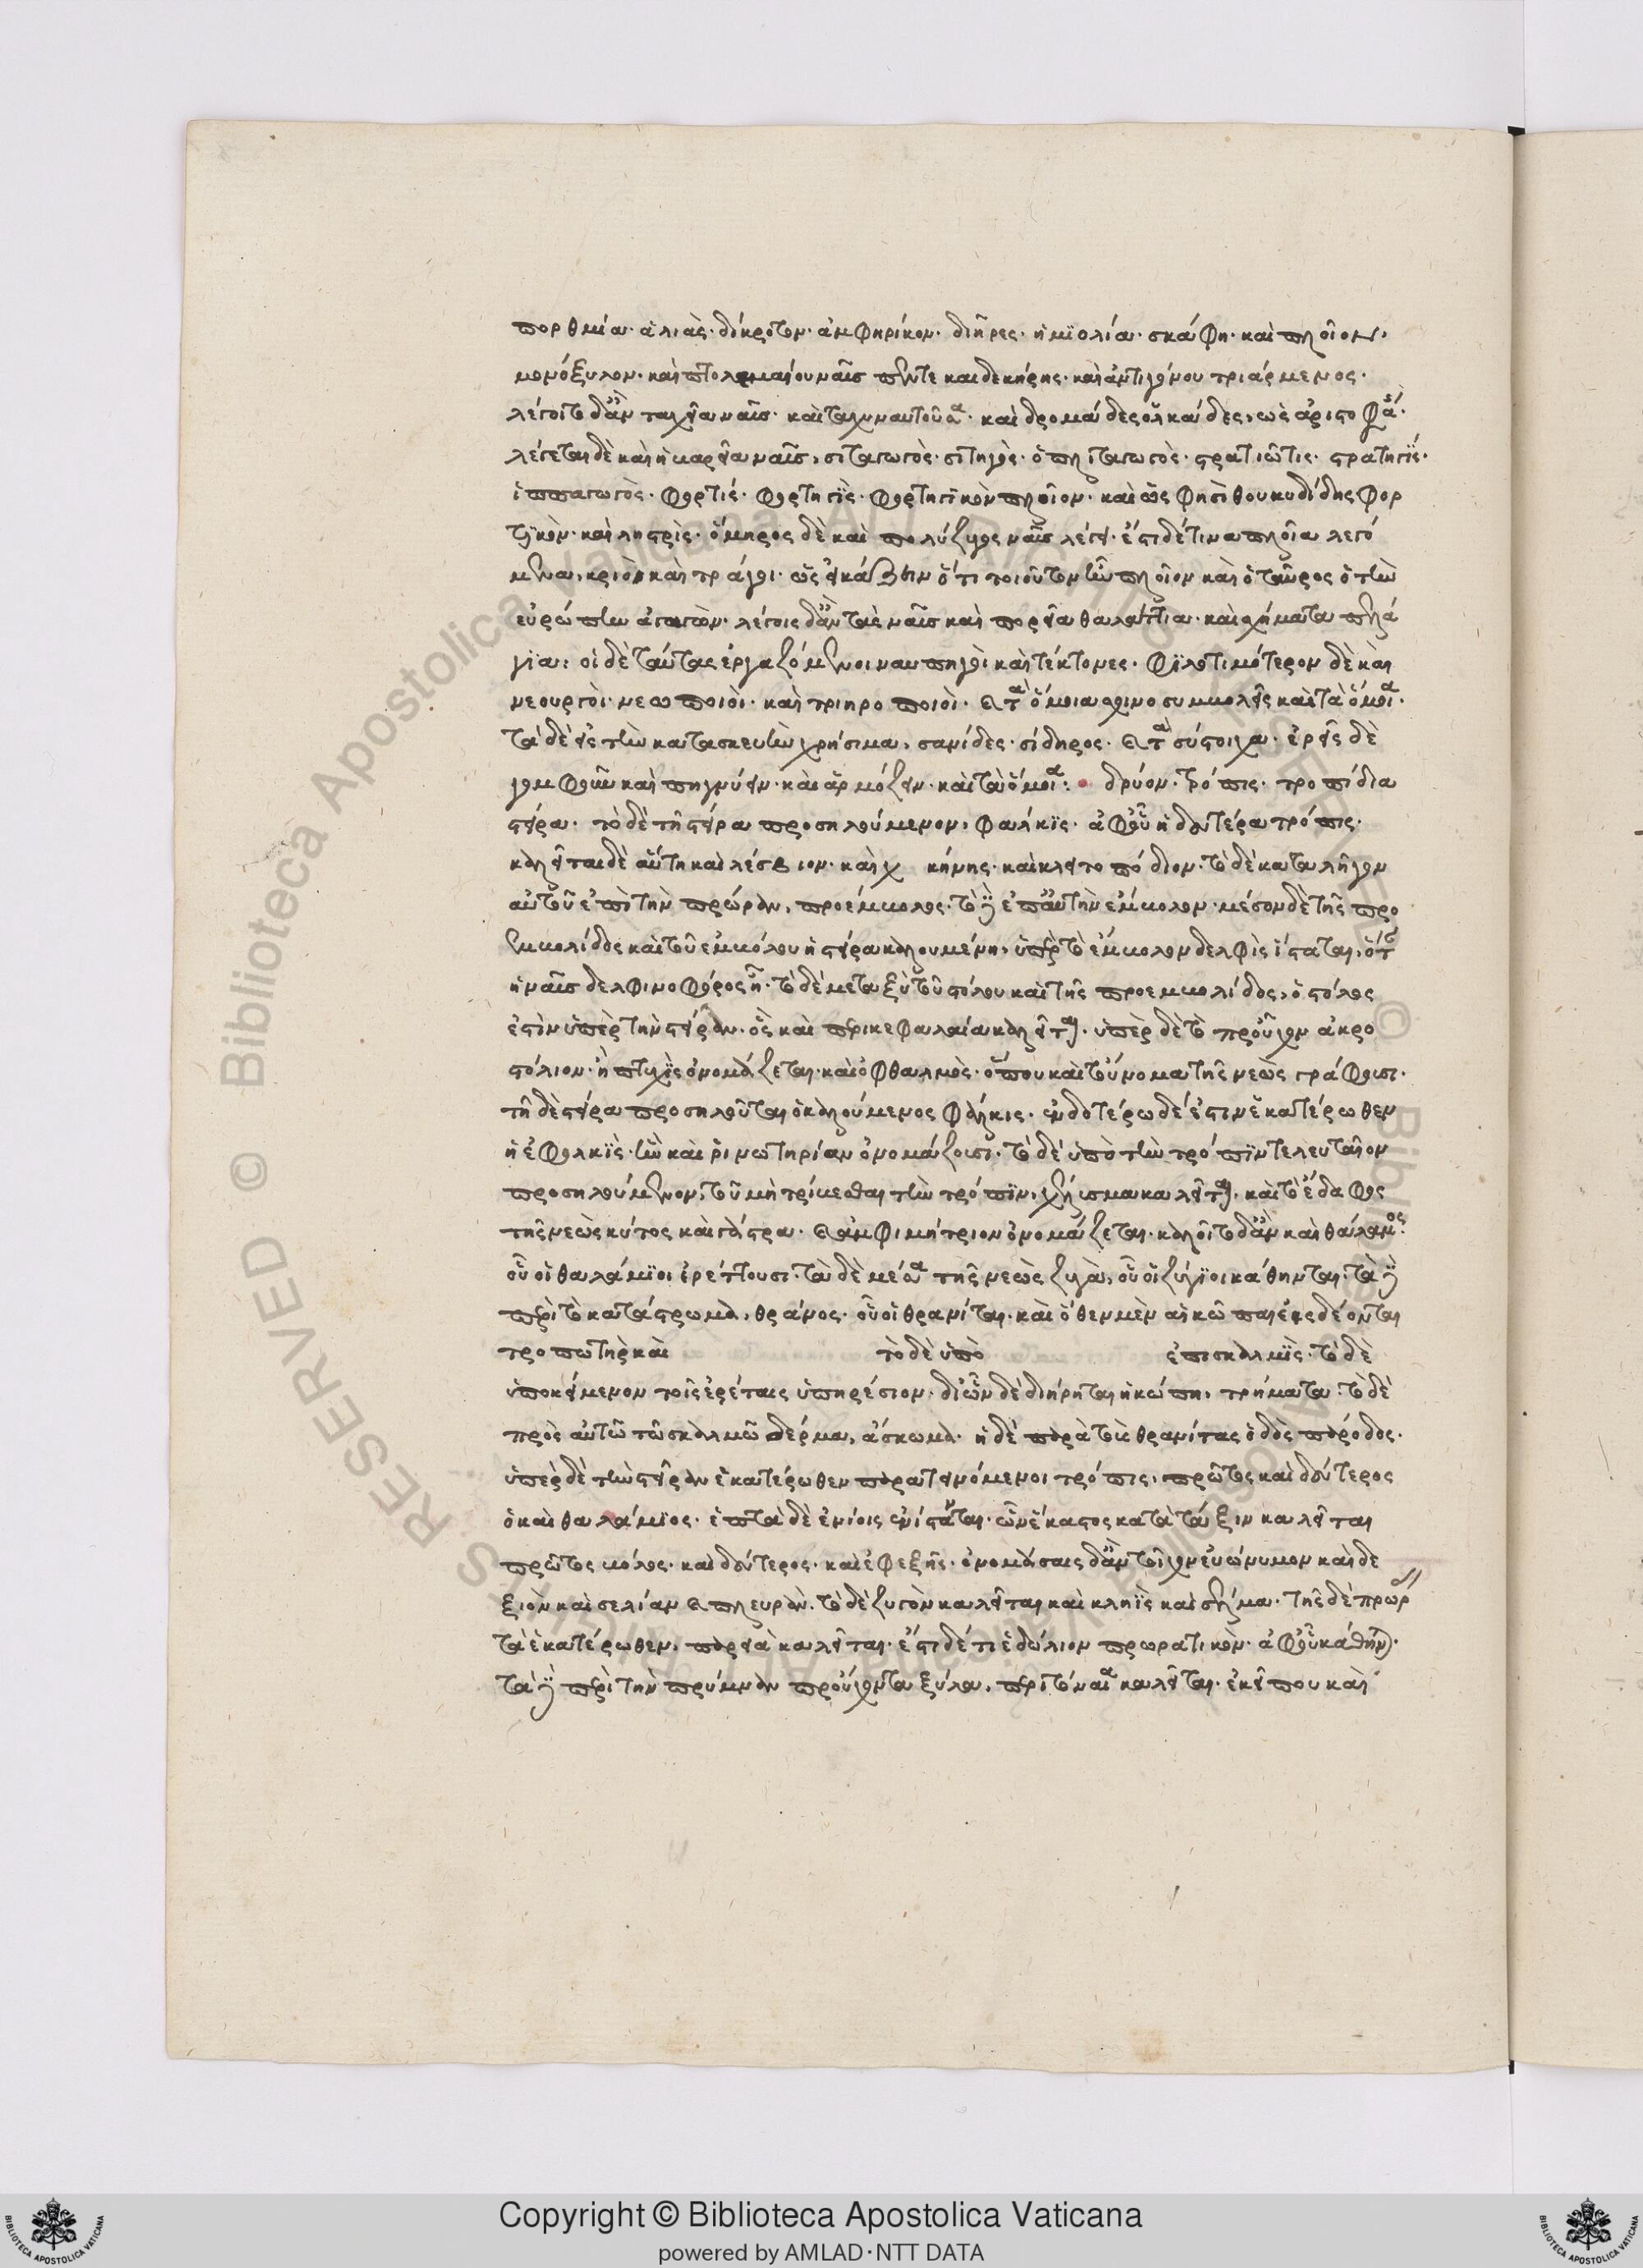 πορθμία· ἁλιὰς· δίκροτον· ἀμφηρίκον· διῆρες· ἡμϊολία· σκάφη· καὶ πλοῖον·
μονόξυλον· καὶ πτολεμαίου ναῦς πεντεκαιδεκήρης· καὶ ἀντιγόνου τριάρμενος·
λέγοιτο δἂν ταχεῖα ναῦς· καὶ καὶ δρομάδες ὁλκάδες, ὡς ἀριστοφά·
λέγεται δὲ καὶ ἡ μακρεῖα ναῦς, σιταγωγὸς· σιτηγὸς· ὁπλιταγωγὸς· στρατιῶτις· στρατηγίς·
ἱππαγωγὸς· φορτὶς· φορτηγῒς· φορτηγϊκὸν πλοῖον· καὶ ὥς φησὶ θουκυδίδης φορ
τϊκὸν· καὶ ληστρὶς· ὅμηρος δὲ καὶ πολύζυγος ναῦς λέγει· ἔστι δέ τινα πλοῖα λεγό
μενα, κριὸι καὶ τράγοι· ὡς εἰκάζειν ὅτι τοιοῦτον ἦν πλοῖον καὶ ὁ ταῦρος ὁ τὴν
εὐρώπην ἀγαγὼν· λέγοις δἂν τὰς ναῦς καὶ πορεῖα θαλάττια· καὶ ὀχήματα πελά
γϊα: οἱ δὲ ταύτας ἐργαζόμενοι ναυπηγοὶ καὶ τέκτονες· φϊλοτιμότερον δὲ καὶ
νεουργοὶ· νεωποιὸι· καὶ τριηροποιὸι· καὶ τὰ ὅμοια σχινοσυμβολεῖς καὶ τὰ ὅμοια·
τὰ δὲ εἰς τὴν κατασκευὴν χρήσιμα, σανίδες· σίδηρος· καὶ τὰ σύστοιχα· ἐρεῖς δὲ
γομφοῦν καὶ πηγνύειν· καὶ ἁρμόζειν· καὶ τὰ ὅμοια: δρύον· τρόπις· τροπίδια
στεῖρα· τὸ δὲ τῆ στείρα προσηλούμενον, φαλκῒς· ἀφοῦ ἡ δευτέρα τρόπις·
καλεῖται δὲ αὕτη καὶ λέσβιον· καὶ χ κήνης· καὶ κλειτοπόδιον· τὸ δὲ καταλῆγον
αὐτοῦ ἐπὶ τὴν πρώραν, προέμβολος· τὸ δὲ ἐπ αὐτὴν ἔμβολον· μέσον δὲ τῆς προ
εμβολίδος καὶ τοῦ ἐμβόλου ἡ στεῖρα καλουμένη, ὑπὲρ τὸ ἔμβολον δελφὶς ἵσταται, ὅτ
ἡ ναῦς δελφινοφόρος ἦ· τὸ δὲ μεταξὺ τοῦ στόλου καὶ τῆς προεμβολίδος, ὁ στόλος
ἐστὶν ὑπὲρ τὴν στεῖραν· ὃς καὶ περικεφαλαία καλεῖται· ὑπὲρ δὲ τὸ προὖχον ἀκρο
στόλιον· ἢ πτυχὶς ὀνομάζεται· καὶ ὀφθαλμὸς· ὅπου καὶ τοὔνομα τῆς νεὼς γράφουσι·
τῆ δὲ στείρα προσηλοῦται ὁ καλούμενος φάλκις· ἐνδοτέρω δέ ἐστιν ἑκατέρωθεν
ἡ ἐφολκῒς· ἣν καὶ ῥινωτηρίαν ὀνομάζουσι· τὸ δὲ ὑπὸ τὴν τρόπϊν τελευταῖον
προσηλούμενον, τοῦ μὴ τρίβεσθαι τὴν τρόπϊν, χέλυσμα καλεῖται· καὶ τὸ ἔδαφος
τῆς νεὼς κύτος καὶ γάστρα· καὶ ἀμφιμήτριον ὀνομάζεται· καλοῖτο δἂν καὶ θάλαμος·
οὗ οἱ θαλάμϊοι ἐρέττουσι· τὰ δὲ μέσα τῆς νεὼς ζυγὰ, οὗ οἱ ζύγϊοι κάθηνται· τὰ δὲ
περὶ τὸ κατάστρωμα, θράνος· οὗ οἱ θρανίται· καὶ ὅθεν μὲν αἱ κῶπαι ἐκδέονται
τροπωτὴρ καὶ τὸ δὲ ὑπὸ ἐπισκαλμῒς· τὸ δὲ
ὑποκείμενον τοῖς ἐρέταις ὑπηρέσιον· διὧν δὲ διήρηται ἡ κώπη, τρήματα· τὸ δὲ
πρὸς αὐτῶ τῶ σκαλμῶ δέρμα, ἄσκωμα· ἡ δὲ παρὰ τοὺς θρανίτας ὁδὸς πάροδος·
ὑπὲρ δὲ τὴν στεῖραν ἑκατέρωθεν παρατεινόμενοι τρόπις, πρῶτος καὶ δεύτερος
ὁ καὶ θαλάμϊος· ἑπτὰ δὲ ἐνίοις ἐνίσταται· ὧν ἕκαστος κατὰ τάξιν καλεῖται
πρῶτος μόλος· καὶ δεύτερος· καὶ ἐφεξῆς· ὀνομάσαις δἂν τοῖχον εὐώνυμον καὶ δε
ξιὸν καὶ σελίαν καὶ πλευρὰν· τὸ δὲ ζυγὸν καλεῖται καὶ κληῒς καὶ σέλμα· τῆς δὲ πρώρ
τὰ ἑκατέρωθεν, παρειὰ καλεῖται· ἔστι δέ τι ἐδώλιον πρωρατικὸν· ἀφοῦ κάθην·
τὰ δὲ περὶ τὴν πρύμναν προὔχοντα ξύλα, περιτόναια καλεῖται· ἐκεῖ που καὶ